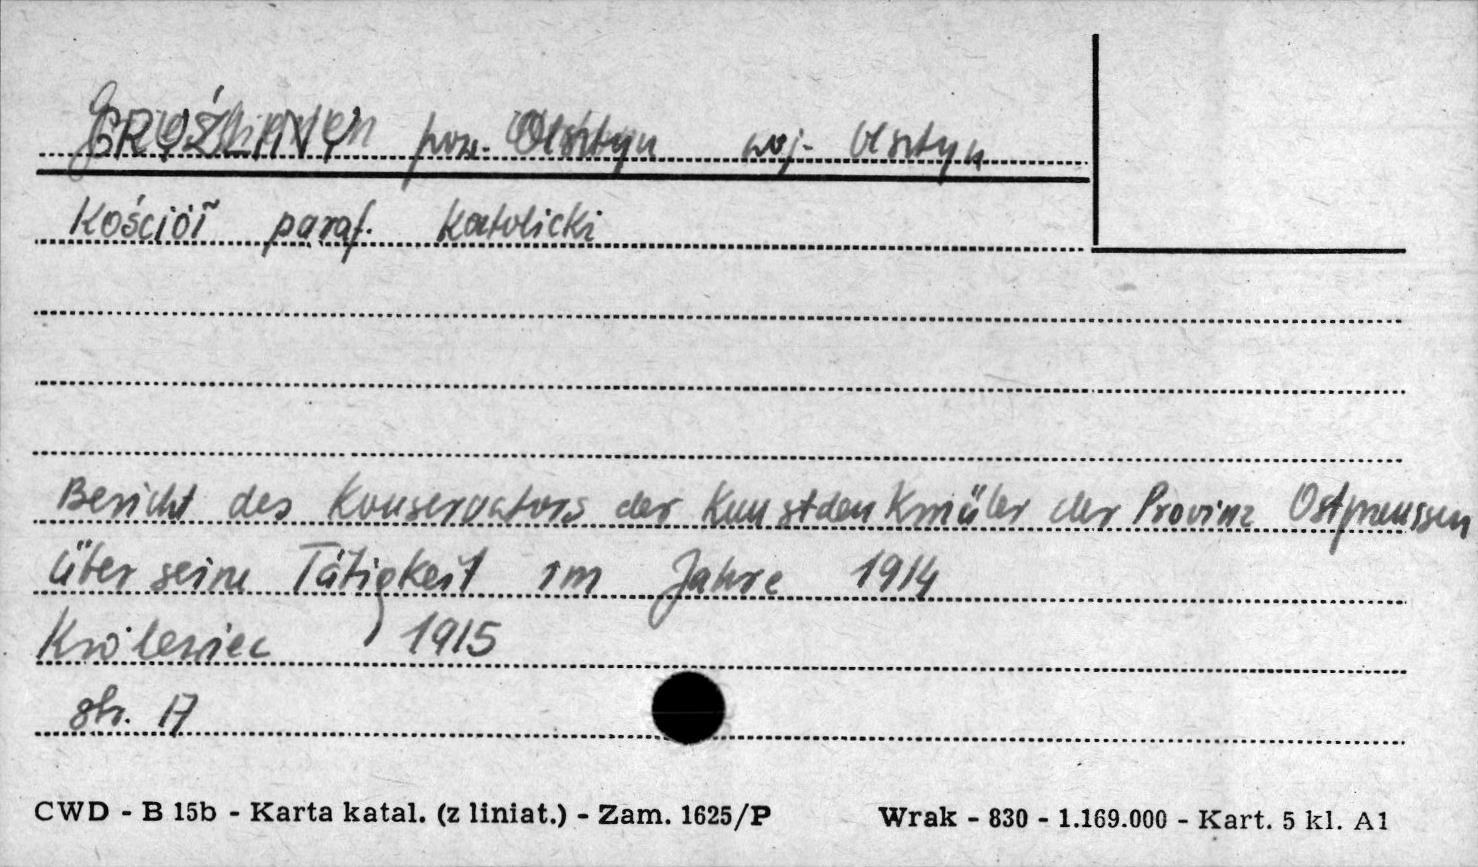 GRYŹLINY pow. Olsztyn woj. Olsztyn
Kościół paraf. katolicki
Bericht des Konservators der Kunstdenkmäler der Provinz Ostpreussen
über seine Tätigkeit im Jahre 1914
Królewiec 1915
str. 17
CWD - B 15b - Karta katal. (z liniat.) - Zam. 1625/P Wrak - 830 - 1.169.000 - Kart. 5 kl. A1